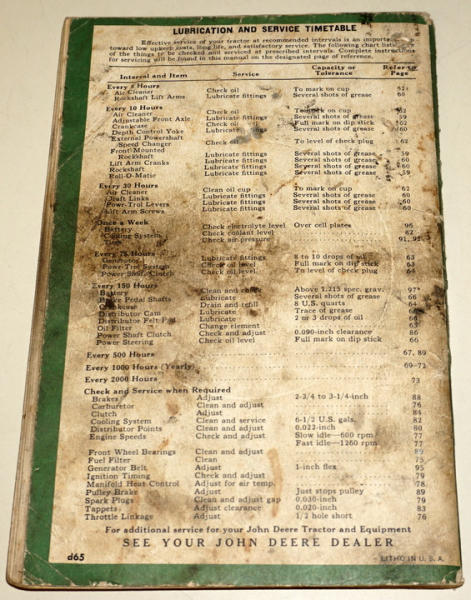 LUBRICATION AND SERVICE TIMETABLE
Effective service of your tractor at recommended intervals is an important
toward low upkeep costs, long life, and satisfactory service. The following chart lists
of the things to be checked and serviced at prescribed intervals. Complete instructions
for servicing will be found in this manual on the designated page of reference.
Interval and Item Service Capacity or Tolerance Refer to Page
Every 5 Hours
Air Cleaner Check oil To mark on cup 62
Rockshaft Lift Arms Lubricate fittings Several shots of grease 60
Every 10 Hours
Air Cleaner Check oil To mark on cup 62
Adjustable Front Axle Lubricate fittings Several shots of grease
Crankcase Check oil Full mark on dip stick 62
Depth Control Yoke Lubricate Several shots of grease 60
External Powershaft
Speed Changer Check To level of check plug 62
Front-Mounted
Rockshaft Lubricate fittings Several shots of grease 59
Lift Arm Cranks Lubricate fittings Several shots of grease 60
Rockshaft Lubricate fittings Several shots of grease 60
Roll-O-Matic Lubricate fittings Several shots of grease 59
Every 30 Hours
Air Cleaner Clean oil cup To mark on cup 62
Draft Links Lubricate fittings Several shots of grease 60
Powr-Trol Levers Lubricate fittings Several shots of grease 60
Lift Arm Screws Lubricate fittings Several shots of grease 60
Once a Week
Battery Check electrolyte level Over cell plates 96
Cooling System Check coolant level 82
Check air pressure 91,
Every 75 Hours
Generator Lubricate fittings 8 to 10 drops of oil 63
Powr-Trol System Check oil level Full mark on dip stick 63
Power Shaft Clutch Check oil level To level of check plug 64
Every 150 Hours
Battery Clean and check Above 1.215 spec. grav. 97
Brake Pedal Shafts Lubricate Several shots of grease 66
Crankcase Drain and refill 8 U.S. quarts 64
Distributor Cam Lubricate Trace of grease 66
Distributor Felt Lubricate 2 or 3 drops of oil
Oil Filter Change element 65
Power Shaft Clutch Check and adjust 0.090-inch clearance 86
Power Steering Check oil level Full mark on dip stick 66
Every 500 Hours 67, 89
Every 1000 Hours (Yearly) 69-73
Every 2000 Hours 73
Check and Service when Required
Brakes Adjust 2-3/4 to 3-1/4-inch 88
Carburetor Clean and adjust 76
Clutch Adjust 84
Cooling System Clean and service 6-1/2 U.S. gals. 82
Distributor Points Clean and adjust 0.022-inch 80
Engine Speeds Check and adjust Slow idle—600 rpm 77
Fast idle—1260 rpm 77
Front Wheel Bearings Clean and adjust 89
Fuel Filter Clean 75
Generator Belt Adjust 1-inch flex 95
Ignition Timing Check and adjust 79
Manifold Heat Control Adjust for air temp. 78
Pulley Brake Adjust Just stops pulley 89
Spark Plugs Clean and adjust gap 0.030-inch 79
Tappets Adjust clearance 0.020-inch 83
Throttle Linkage Adjust 1/2 hole short 76
For additional service for your John Deere Tractor and Equipment
SEE YOUR JOHN DEERE DEALER
d65
LITHO IN U.S.A.